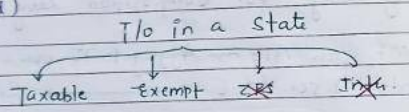 T/o in a State
Taxable Exempt ZRS